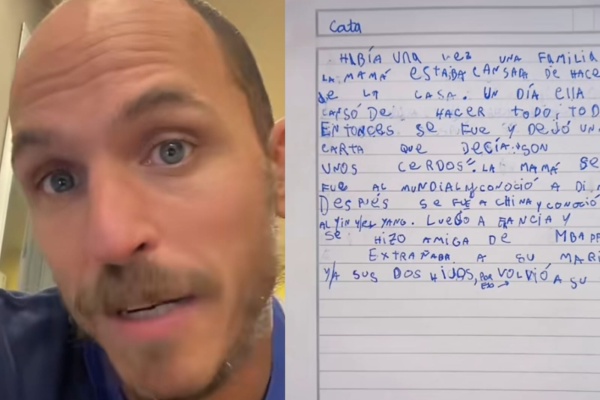 Cata
HABÍA UNA VEZ UNA FAMILIA
LA MAMÁ ESTABA CANSADA DE HACE
DE LA CASA. UN DÍA ELLA
CANSÓ DE HACER TODO, TOD
ENTONCES SE FUE Y DEJÓ UN
CARTA QUE DECÍA: SON
UNOS CERDOS. LA MAMÁ SE
FUE AL MUNDIAL Y CONOCIÓ A DI
DESPUÉS SE FUE A CHINA Y CONOCIÓ
AL YIN Y/EL YANG. LUEGO A FANCIA Y
SE HIZO AMIGA DE MBAPP
EXTRAÑABA A SU MARI
Y/A SUS DOS HIJOS, POR ESO → VOLVIÓ A SU